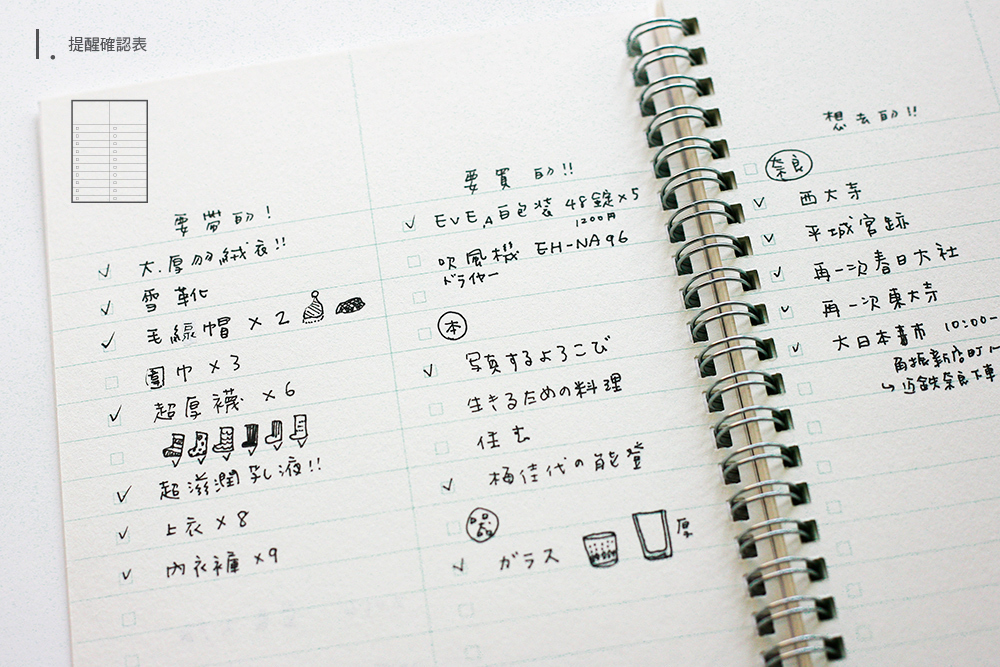 提醒確認表
要帶的!
大.厚羽絨衣!!
雪靴
毛線帽 ×2
圍巾 ×3
超厚襪 ×6
超滋潤乳液!!
上衣 ×8
內衣褲 ×9
要買的!!
EVE.A 白包装 48錠×5
1200円
吹風機 EH-NA96
ドライヤー
本
写真するよろこび
生きるための料理
住む
梅佳代の能登
器
ガラス 厚
想去的!!
奈良
西大寺
平城宮跡
再一次春日大社
再一次東大寺
大日本書市 10:00-
角振新店町
↳ 近鉄奈良下車